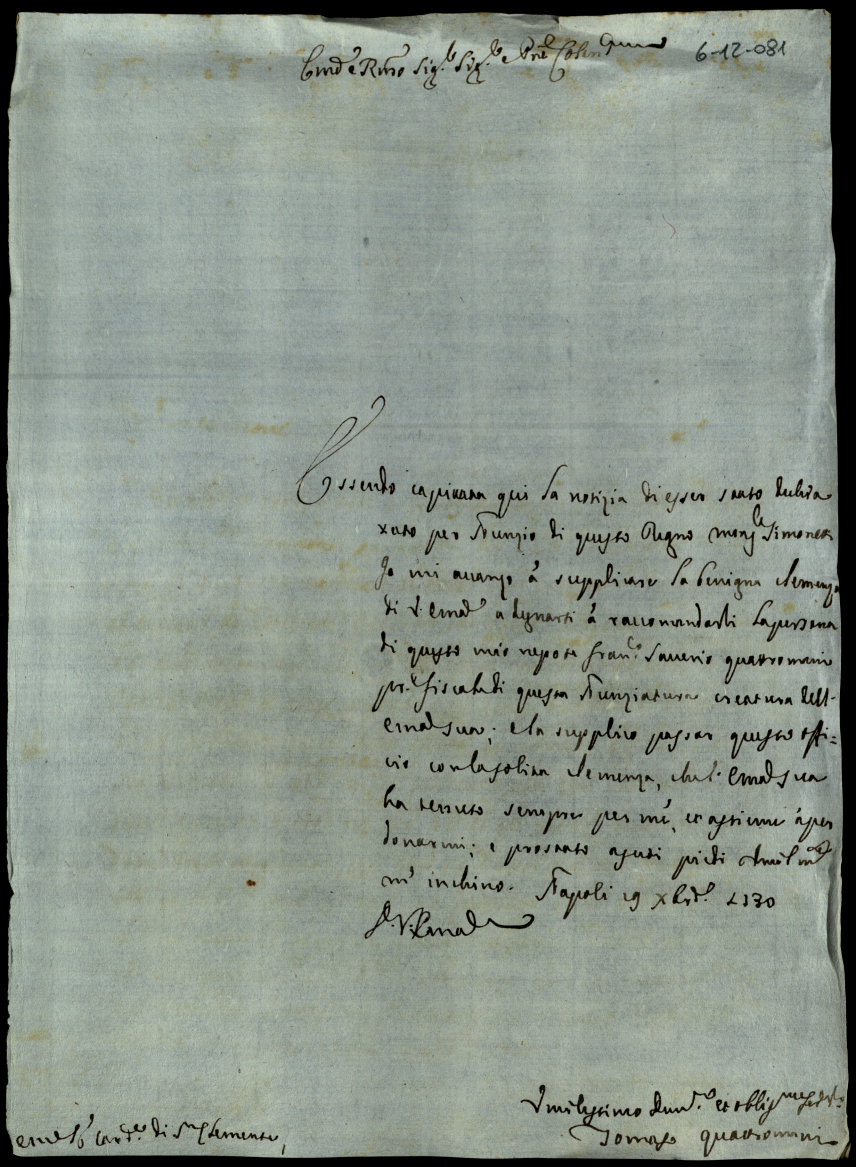 Em.o e R.mo Sig.re Sig.re e Pr̃ne Col.mo
6-12-081
Essendo capitata qui la notizia di esser stato dichia
rato per Nunzio di questo Regno mons.re Simonetti
Io mi avanzo à supplicare la benigna clemenza
di V. Em.a a degnarsi à raccomandarli la persona
di questo mio nepote Fran.co Saverio Quattromani
pr. fiscale di questa Nunziatura creatura dell'
Em.a Sua; e la supplico passar questo offi=
cio con la solita clemenza, che l'Em.a Sua
ha tenuto sempre per mè, et assieme à per
donarmi; e prostrato a suoi piedi
m'inchino. Napoli 19 Xbre 1730
D. V. Em.a
Umilissimo et oblig.mo
Em.o Card.le di S. Clemente,
Tomaso Quattromani